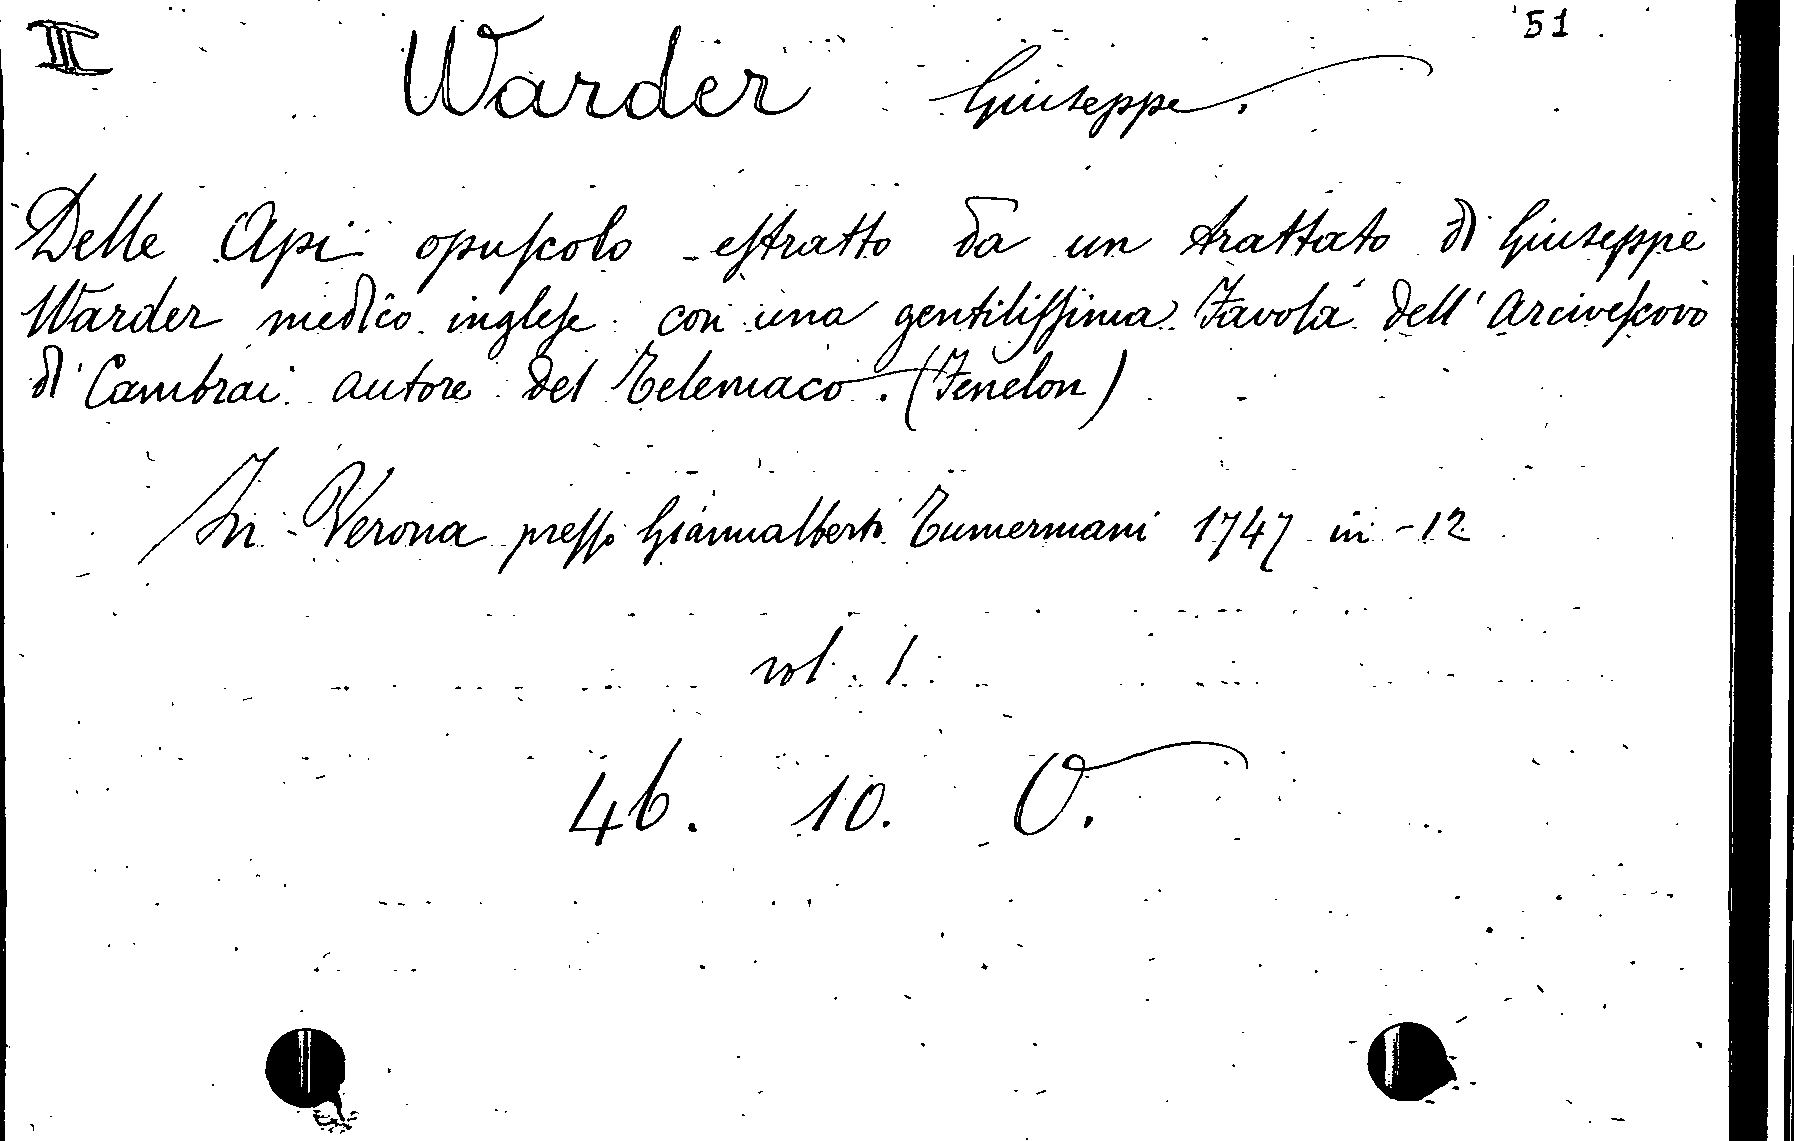 II 51
Warder Giuseppe.
Delle Api opuscolo estratto da un trattato di Giuseppe
Warder medico inglese con una gentilissima Favola dell' Arcivescovo
di Cambrai autore del Telemaco. (Fenelon)
In Verona presso Giannalberto Tumermani 1747 in-12
vol. 1
46. 10. O.